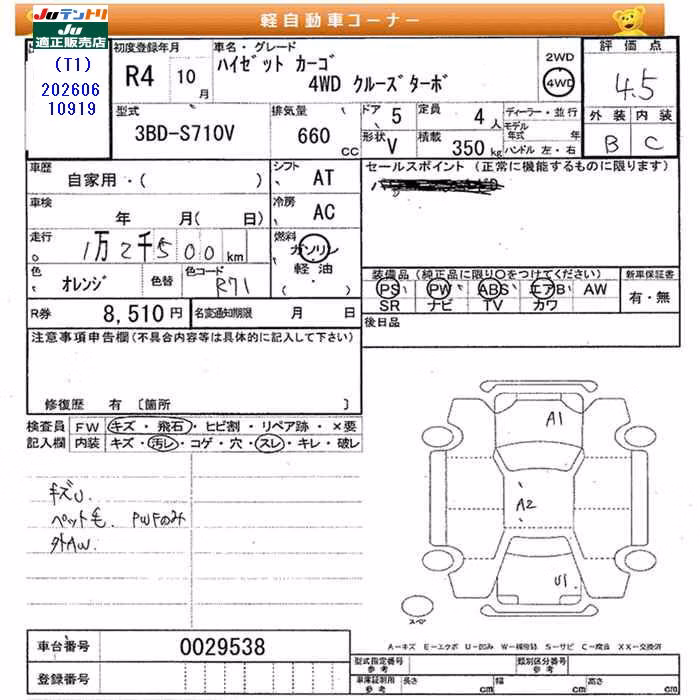 JUテントリ
JU
適正販売店
軽自動車コーナー
(T1)
202606
10919
初度登録年月
R4 10 月
車名・グレード
ハイゼット カーゴ
4WD クルーズターボ
2WD
4WD
評価点
4.5
外装 内装
B C
型式
3BD-S710V
排気量
660 CC
ドア 5
形状 V
定員 4 人
積載 350 kg
ディーラー・並行
モデル年式 年
ハンドル 左・右
車歴
自家用・( )
シフト AT
車検
年 月( 日)
冷房 AC
走行
1万2千500 km
燃料 ガソリン
軽油
( ・ )
色 オレンジ 色替 色コード R71
セールスポイント (正常に機能するものに限ります)
装備品 (純正品に限り○をつけてください) 新車保証書
PS PW ABS エアB AW 有・無
SR ナビ TV カワ
R券 8,510円 名変通知期限 月 日
後日品
注意事項申告欄(不具合内容等は具体的に記入して下さい)
修復歴 有 〔箇所 〕
検査員 FW キズ・飛石・ヒビ割・リペア跡・×要
記入欄 内装 キズ・汚レ・コゲ・穴・スレ・キレ・破レ
キズU.
ペット毛. PWFのみ
外AW.
A1
A2
U1
スペア
A−キズ E−エクボ U−凹み W−補修跡 S−サビ C−腐食 XX−交換済
車台番号 0029538
登録番号
型式指定番号 参考 類別区分番号 参考
車庫証明用 参考 長さ cm 幅 cm 高さ cm